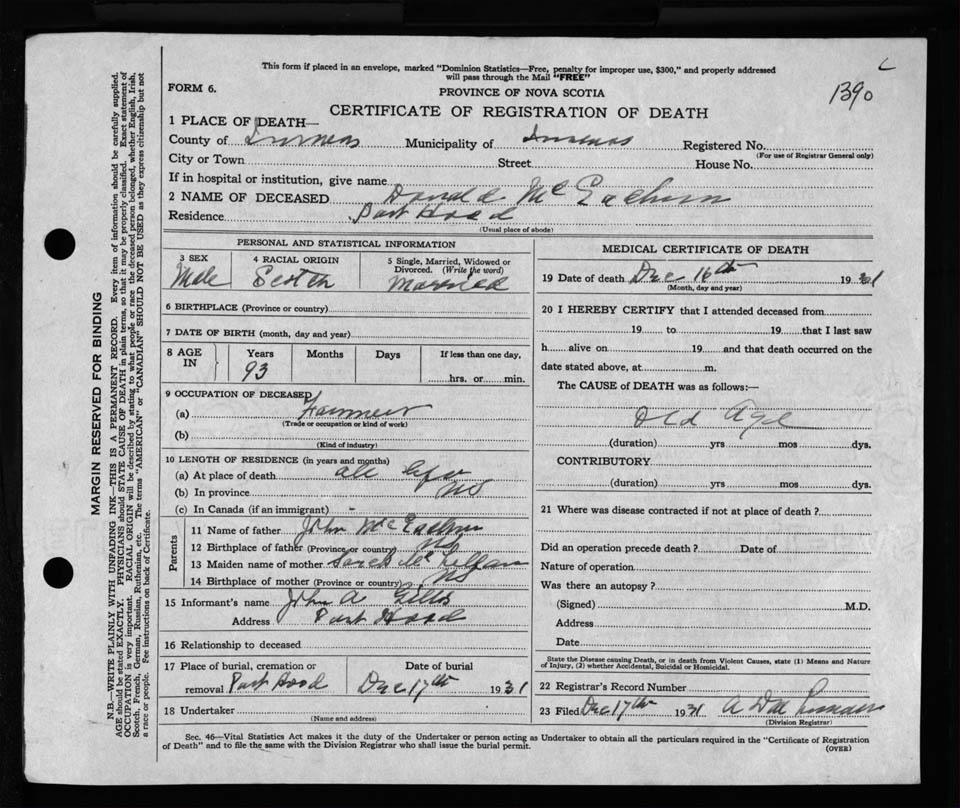 This form if placed in an envelope, marked "Dominion Statistics—Free, penalty for improper use, $300," and properly addressed
will pass through the Mail "FREE"
FORM 6.
PROVINCE OF NOVA SCOTIA
1390
CERTIFICATE OF REGISTRATION OF DEATH
1 PLACE OF DEATH—
County of Inverness Municipality of Inverness Registered No.
(For use of Registrar General only)
City or Town Street House No.
If in hospital or institution, give name
2 NAME OF DECEASED Donald McEachern
Residence Port Hood
(Usual place of abode)
PERSONAL AND STATISTICAL INFORMATION
3 SEX 4 RACIAL ORIGIN 5 Single, Married, Widowed or
Divorced. (Write the word)
Male Scotch Married
6 BIRTHPLACE (Province or country)
7 DATE OF BIRTH (month, day and year)
8 AGE IN Years Months Days If less than one day,
93 hrs. or min.
9 OCCUPATION OF DECEASED
(a) Farmer
(Trade or occupation or kind of work)
(b)
(Kind of industry)
10 LENGTH OF RESIDENCE (in years and months)
(a) At place of death all life
(b) In province NS
(c) In Canada (if an immigrant) -
Parents
11 Name of father John McEachern
12 Birthplace of father (Province or country) NS
13 Maiden name of mother Sarah Mc
14 Birthplace of mother (Province or country) NS
15 Informant's name John A Gillis
Address Port Hood
16 Relationship to deceased
17 Place of burial, cremation or Date of burial
removal Port Hood Dec 17th 1931
18 Undertaker
(Name and address)
MEDICAL CERTIFICATE OF DEATH
19 Date of death Dec 16th 1931
(Month, day and year)
20 I HEREBY CERTIFY that I attended deceased from
19 to 19 that I last saw
h alive on 19 and that death occurred on the
date stated above, at m.
The CAUSE of DEATH was as follows:—
Old Age
(duration) yrs mos dys.
CONTRIBUTORY
(duration) yrs mos dys.
21 Where was disease contracted if not at place of death?
Did an operation precede death? Date of
Nature of operation
Was there an autopsy?
(Signed) M.D.
Address
Date
State the Disease causing Death, or in death from Violent Causes, state (1) Means and Nature
of Injury, (2) whether Accidental, Suicidal or Homicidal.
22 Registrar's Record Number
23 Filed Dec 17th 1931 A
(Division Registrar)
Sec. 46—Vital Statistics Act makes it the duty of the Undertaker or person acting as Undertaker to obtain all the particulars required in the "Certificate of Registration
of Death" and to file the same with the Division Registrar who shall issue the burial permit.
(OVER)
MARGIN RESERVED FOR BINDING
N.B.—WRITE PLAINLY WITH UNFADING INK—THIS IS A PERMANENT RECORD. Every item of information should be carefully supplied.
AGE should be stated EXACTLY. PHYSICIANS should STATE CAUSE OF DEATH in plain terms, so that it may be properly classified. Exact statement of
OCCUPATION is very important. RACIAL ORIGIN will be described by stating to what people or race the deceased person belonged, whether English, Irish,
Scotch, French, German, Russian, Ruthenian, etc. The terms "AMERICAN" or "CANADIAN" SHOULD NOT BE USED as they express citizenship but not
a race or people. See instructions on back of Certificate.